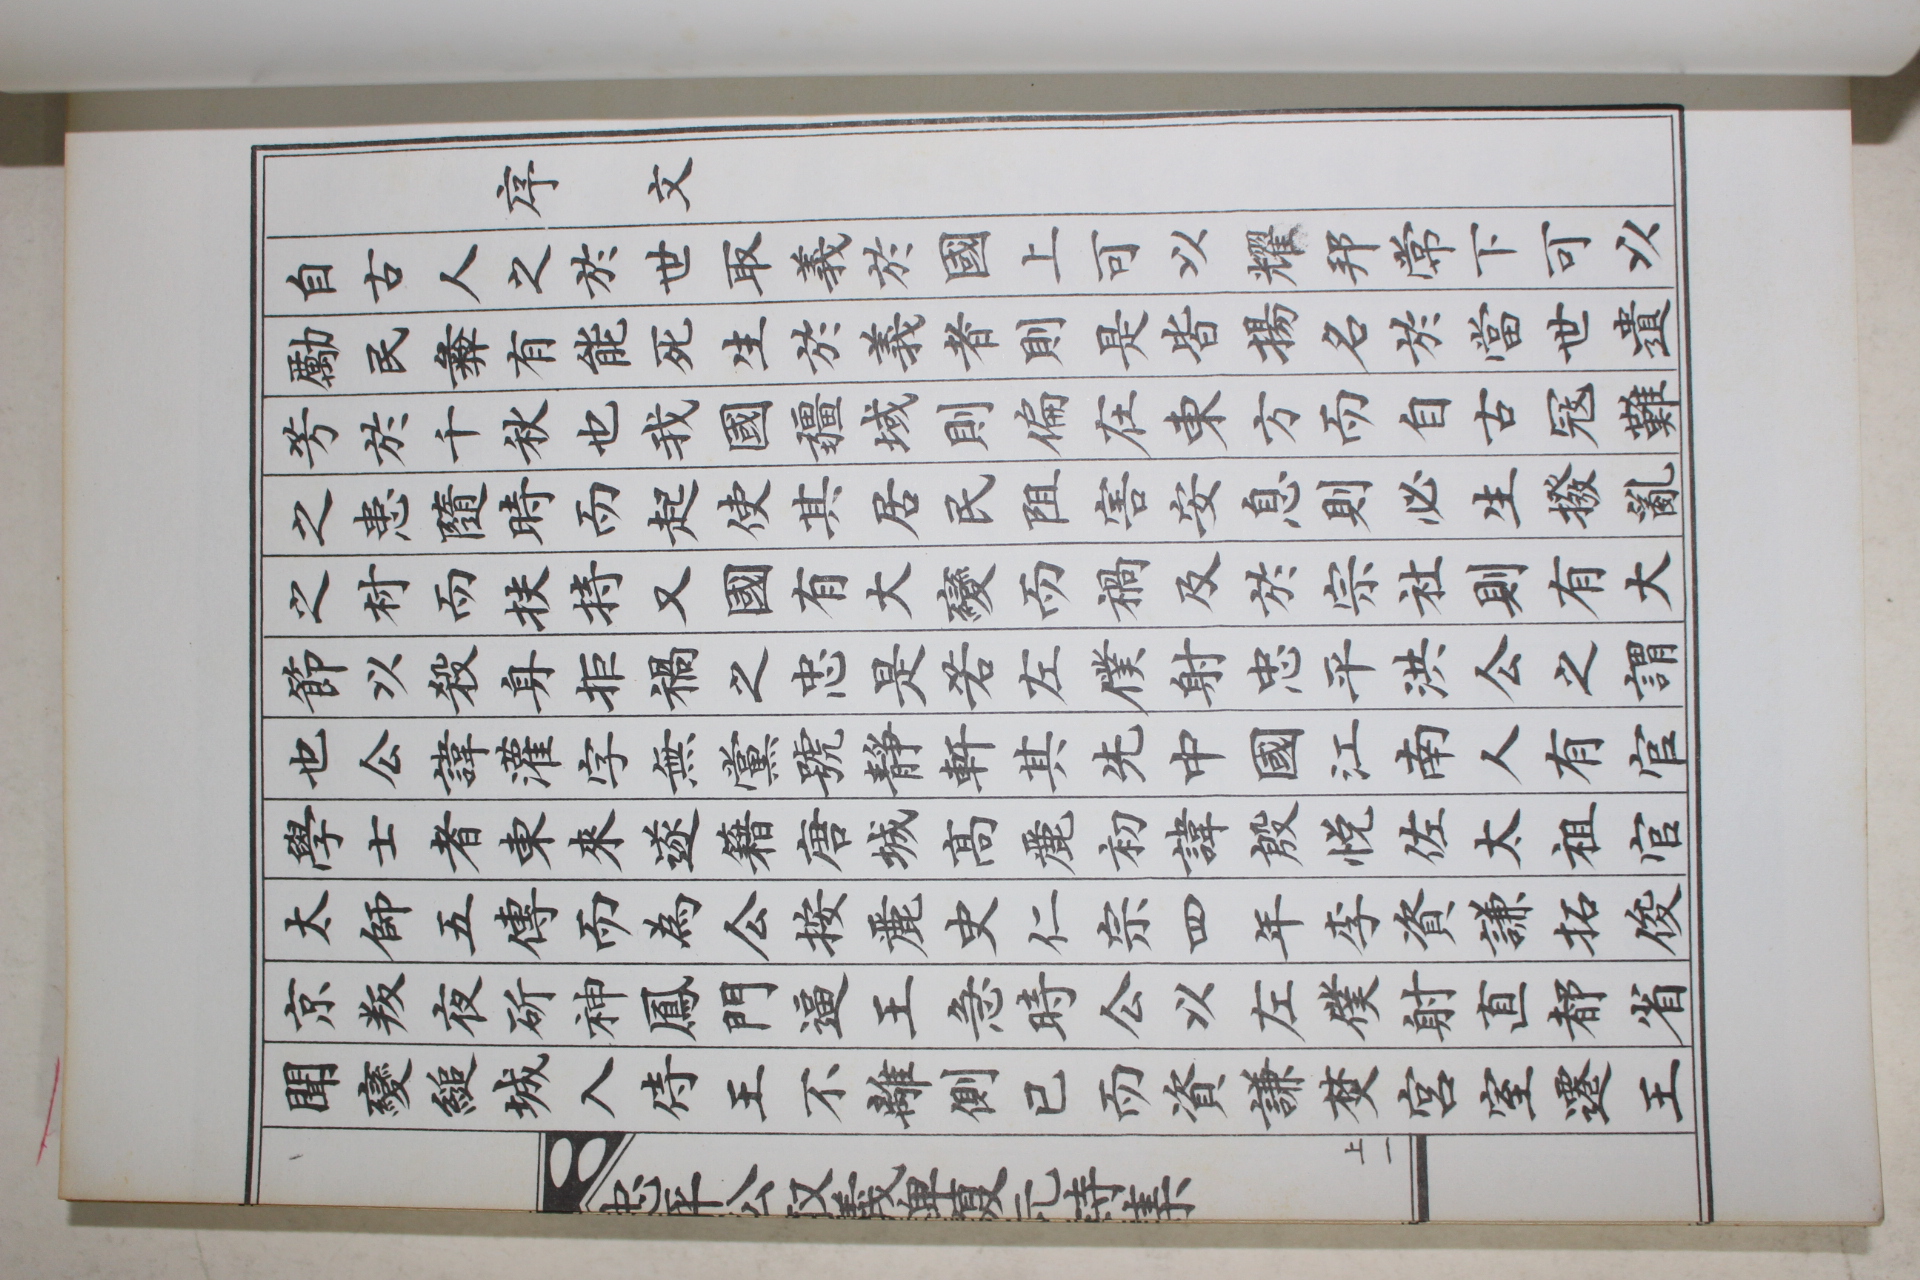 序文
自古人之於世取義於國上可以耀邦常下可以
勵民彝有能死生於義者則是皆揚名於當世遺
芳於千秋也我國疆域則偏在東方而自古冠難
之患隨時而起使其居民阻害安息則必生撥亂
之村而扶持又國有大變而禍及於宗社則有大
節以殺身拒禍之忠是若左僕射忠平洪公之謂
也公諱灌字無黨號靜軒其先中國江南人有官
學士者東來遂籍唐城高麗初諱殷悅佐太祖官
太師五傳而為公按麗史仁宗四年李資謙拓俊
京叛夜斫神鳳門逼王急時公以左僕射直都省
聞變縋城入侍王不離側已而資謙焚宮室遷王
忠平公取義碑復元詩集
上一